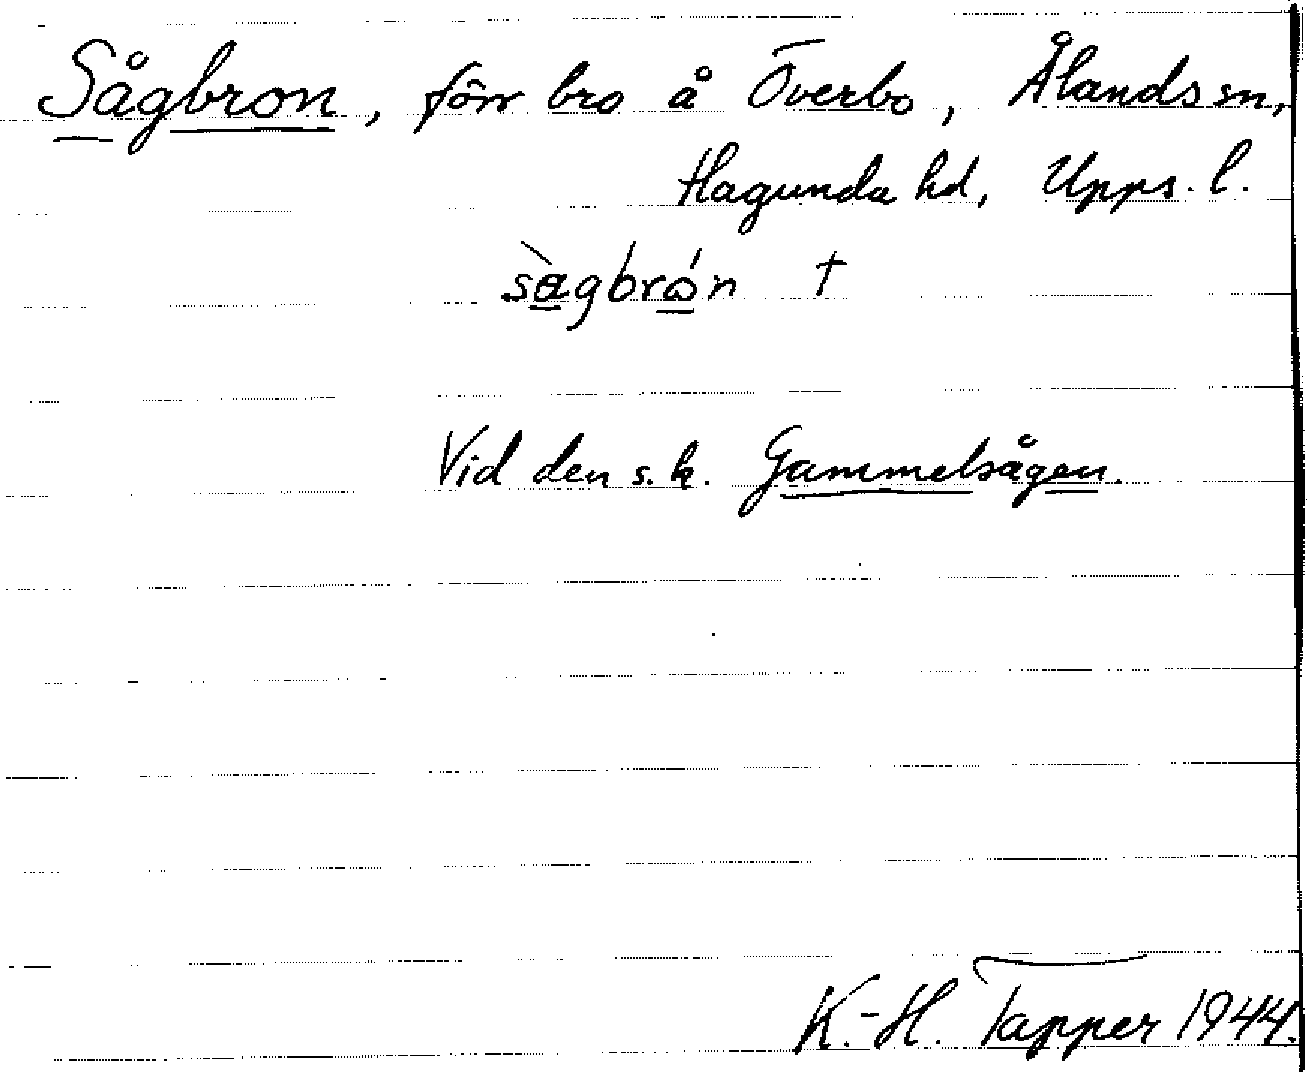 Sågbron, förr bro å Överbo, Ålands sn,
Hagunda hd, Upps. l.
sàgbrón †
Vid den s.k. Gammelsågen.
K.-H. Tapper 1944.